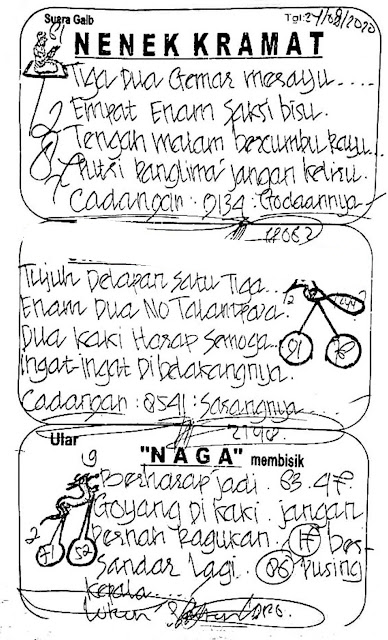 Suara Gaib
Tgl: 24/08/2020
NENEK KRAMAT
Tiga Dua Gemar merayu.....
Empat Enam Saksi bisu.
Tengah malam bercumbu rayu...
Putri Panglima jangan keliru.
Cadangan : 9134 : Godaannya
Tujuh Delapan Satu Tiga...
Enam Dua No
Dua kaki Harap Semoga...
ingat-ingat Di belakangnya.
91
Cadangan : 8541 : Sarangnya....
2198
Ular
9
"NAGA" membisik
Berharap jadi . 83. 47.
Goyang Di kaki . jangan
2
71 52
Pernah Ragukan. 17 ber-
Sandar Lagi . 86 Pusing
Kepala